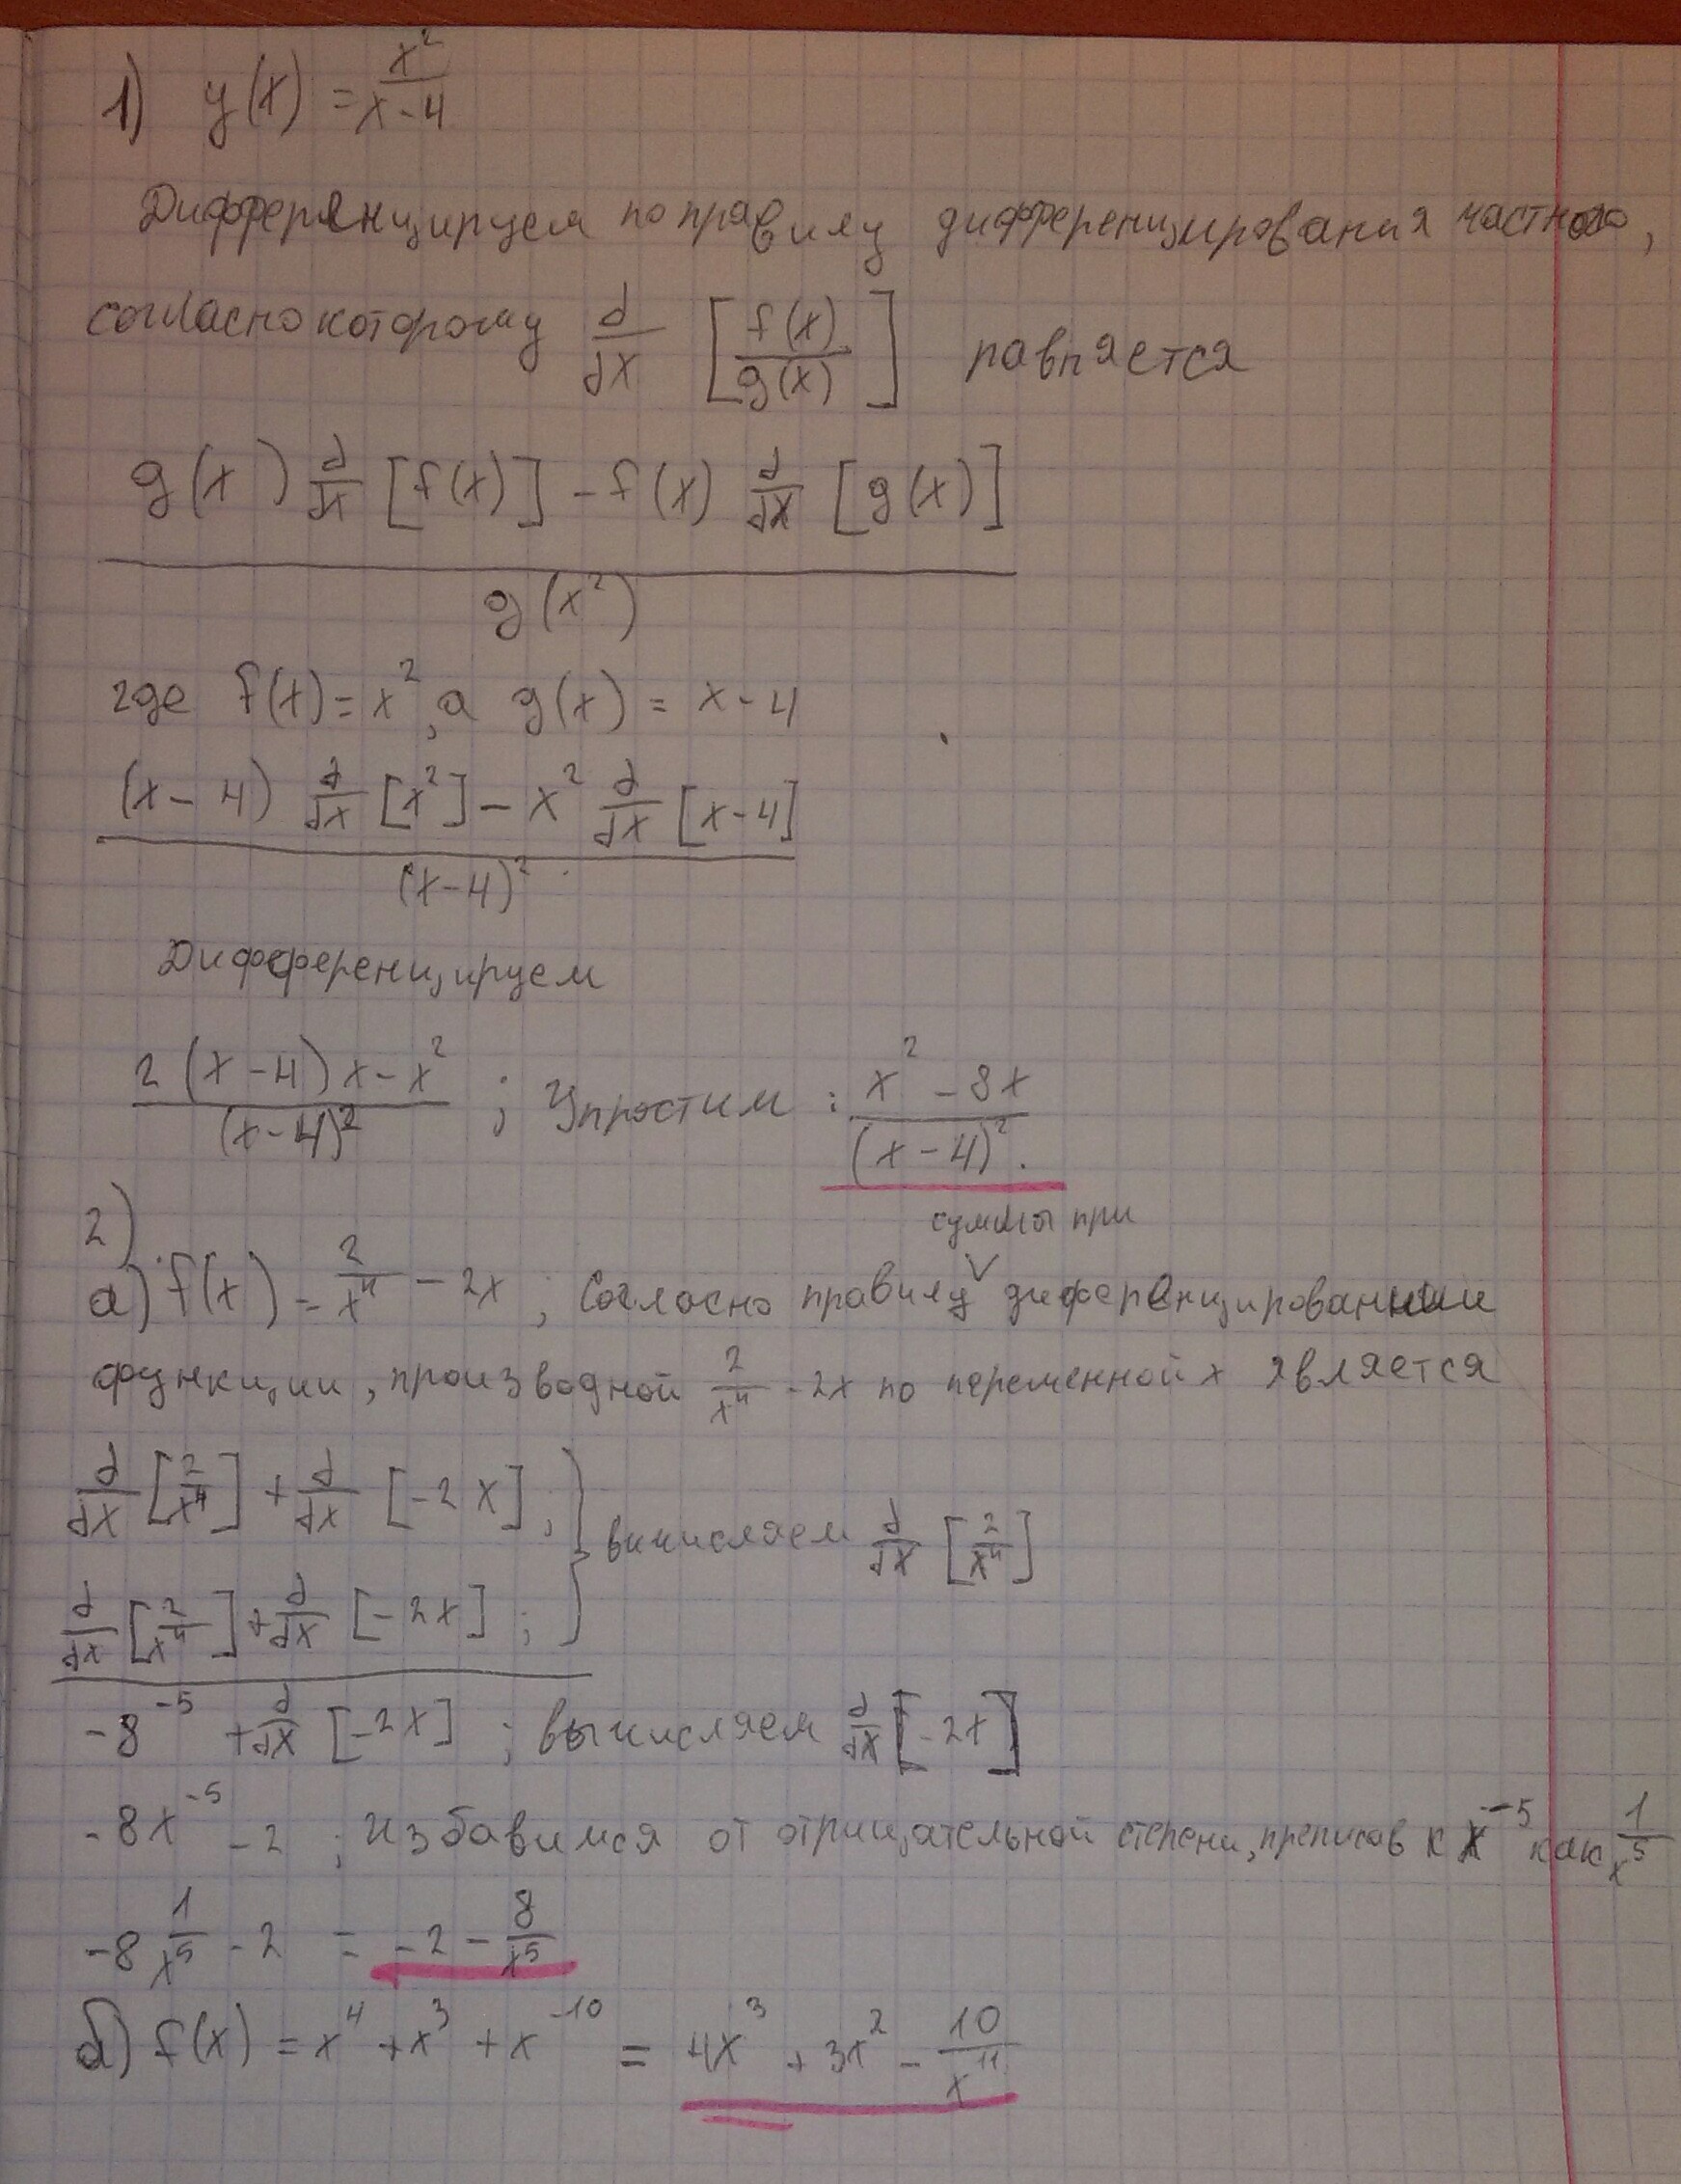 1) y(x) = x²/(x-4)
Дифференцируем по правилу дифференцирования частного,
согласно которому d/dx [f(x)/g(x)] равняется
g(x) d/dx [f(x)] - f(x) d/dx [g(x)]
g(x²)
где f(x) = x², а g(x) = x-4
(x-4) d/dx [x²] - x² d/dx [x-4]
(x-4)²
Дифференцируем
2(x-4)x-x²/(x-4)² ; Упростим : x²-8x/(x-4)².
2)
суммы при
а) f(x) = 2/x⁴ - 2x ; Согласно правилу ∨ диференцировании
функции, производной 2/x⁴ - 2x по переменной x является
d/dx [2/x⁴] + d/dx [-2x] ;
вычисляем d/dx [2/x⁴]
d/dx [2/x⁴] + d/dx [-2x] ;
-8⁻⁵ + d/dx [-2x] ; вычисляем d/dx [-2x]
-8x⁻⁵ - 2 ; избавимся от отрицательной степени, преписав к x⁻⁵ как 1/x⁵
-8 1/x⁵ - 2 = -2 - 8/x⁵
б) f(x) = x⁴ + x³ + x⁻¹⁰ = 4x³ + 3x² - 10/x¹¹